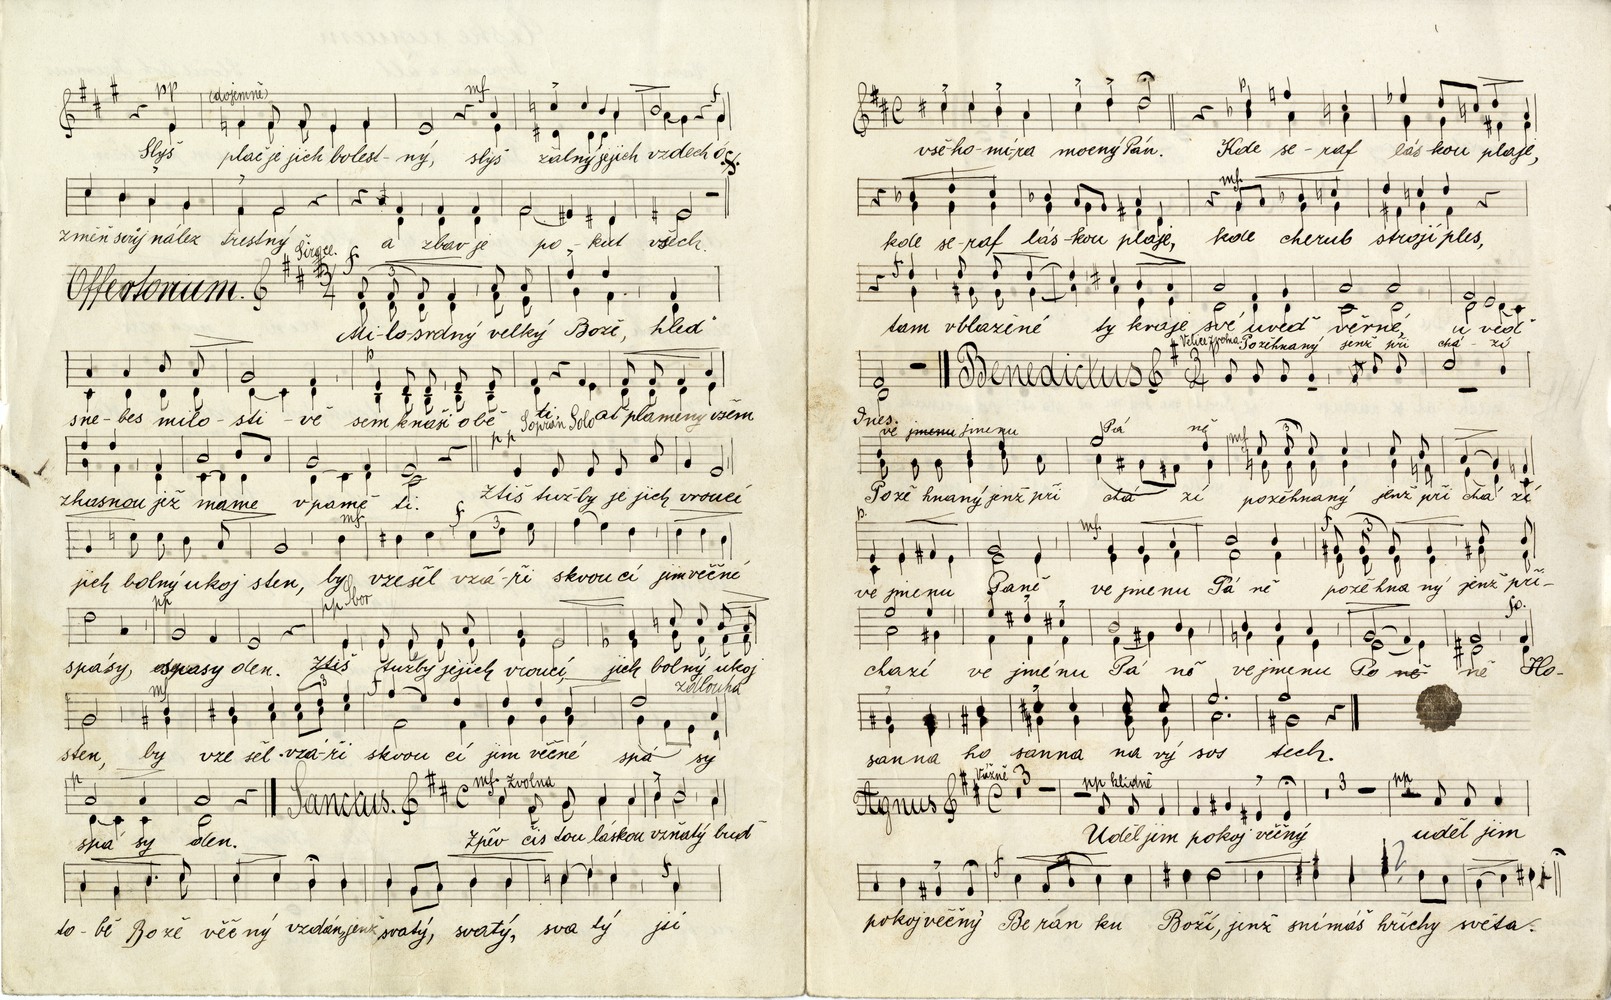 pp (dojemně) mf f
Slyš pláč je jich bolest- ný, slyš žalný jejich vzdech
změň svůj nález trestný a zbav je po - kut všech.
Offertorium. Širǒce. 3/4 f
Mi-lo-srdný velký Bože, hleď
p
sne-bes milo-sti-vě sem k naší obě ti, Soprán Solo ať plameny všem
pp
zhasnou jež máme v pamě ti. Ztiš tužby je jich vroucí
mf f 3
jich bolný ukoj sten, by vzešel vzá-ří skvoucí jim věčné
pp pp sbor
spásy, spasy den. Ztiš tužby jejich vroucí, jich bolný ukoj
mf 3 f zdlouha
sten, by vze šel vzá-ří skvou cí jim věčné spá sy
p Sanctus. C mf. Zvolna
spá sy den. Zpěv čis tou láskou vzňatý buď
f
to-bě Bo že věč ný vzdán, jenž svatý, svatý, sva tý jsi
C p
vše-ho-mí-ra mocný Pán. Kde se-raf lás kou pláje,
mf.
kde se-raf lás-kou pláje, kde cherub strojí ples,
f
tam v blaženě ty kraje své uveď věrné, u veď
Velice zvolna Požehnaný jenž při chá-zí
Benedictus 2/4
Dnes.
ve jmenu jmenu Pá ně mf 3
Pože hnaný jenž při chá zí požehnaný jenž při chá zí
p. mf. f 3
ve jmenu Páně ve jmenu Pá ně pože hna ný jenž při-
fo.
chází ve jménu Pá ně ve jmenu Pa ně ně Ho-
sanna ho sanna na vý sos tech.
Agnus C Vážně 3 pp klidně 3 pp
Uděl jim pokoj věčný uděl jim
f
pokoj věčný Be rán ku Boží, jenž snímáš hříchy světa.